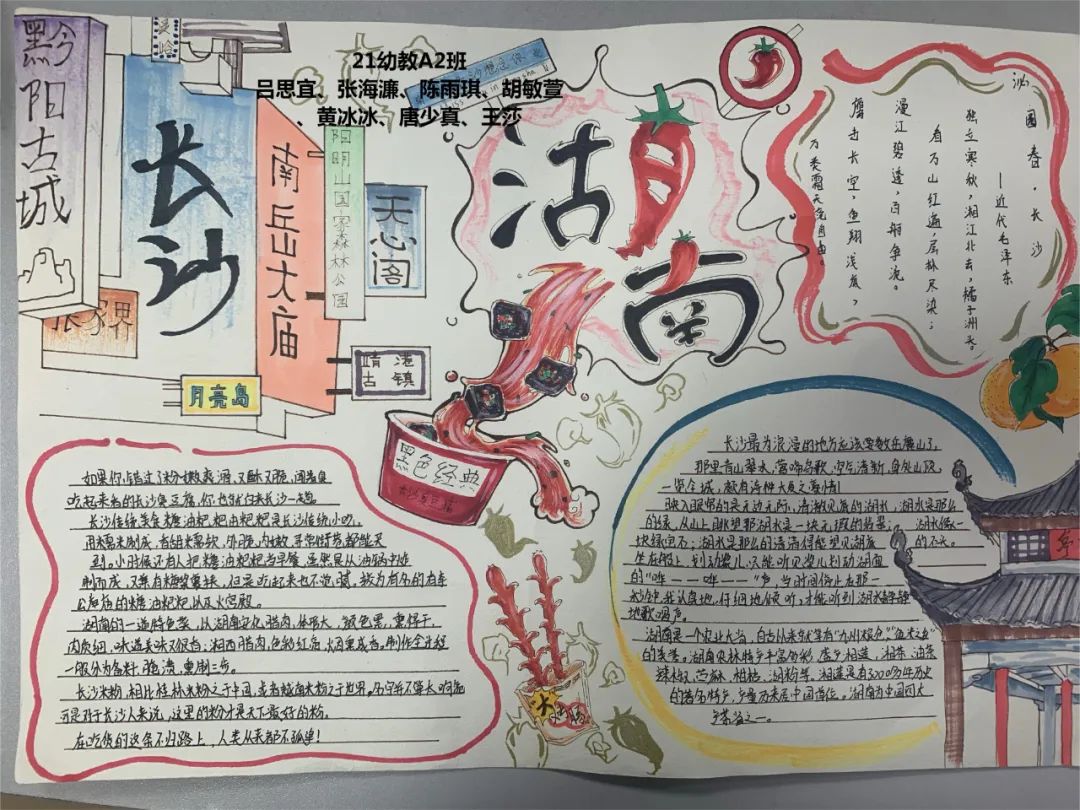 21幼教A2班
吕思宜、张海濂、陈雨琪、胡敏萱
、黄冰冰、唐少真、王莎
黔阳古城
长沙
南岳大庙
阳明山国家森林公园
天心阁
张家界
靖港
古镇
月亮岛
湖南
黑色经典
长沙臭豆腐
沁园春·长沙
——近代毛泽东
独立寒秋,湘江北去,橘子洲头。
看万山红遍,层林尽染;
漫江碧透,百舸争流。
鹰击长空,鱼翔浅底,
万类霜天竞自由。
如果你错过了粉嫩爽滑,又酥又脆,闻着臭
吃起来香的长沙臭豆腐,你也就白来长沙一趟
长沙传统美食糖油粑粑由粑粑是长沙传统小吃,
用糯米制成,
到。小时候还有人把糖油粑粑当早餐,虽然是从油锅中炸
制而成,又裹有
公庙的糖油粑粑以及火宫殿。
湖南的一道特色菜,以湖南安化腊肉,体形大,颜色黑,熏得干,
肉质细,味道美味又飘香;湘西腊肉,色彩红亮,
一般分为备料,腌渍,熏制三步。
长沙米粉,相比桂林米粉之于中国,或者越南米粉之于世界,
可是对于长沙人来说,这里的粉才是天下最好的粉。
在吃货的这条不归路上,人类从来都不孤单!
长沙最为浪漫的地方应该要数岳麓山了,
那里青山翠水,莺啼鸟歌,空气清新,身处山顶
一览全城,颇有诗仙大夫之豪情!
映入眼帘的是无边无际,清澈见底的湖水,湖水是那么
的绿,从山上眺望那湖水是一块无瑕的翡翠;湖水像一
块绿宝石;湖水是那么的清清得能望见湖底的石头。
生在船上,划动桨儿,只能听见桨儿划动湖面
的“哗——哗——”声,当时间停止在那一
刻,我认真地,仔细地倾听,才能听到湖水静静
地歌唱声。
湖南是一个农业大省,自古以来就享有“九州粮仓”“鱼米之乡”
的美誉。湖南农林特产丰富多彩,盛产湘莲、湘茶、油茶
辣椒、苎麻、柑桔、湖粉等,湘莲是有3000多年历史
的著名特产,产量历来居中国首位,湖南为中国四大
产茶省之一。